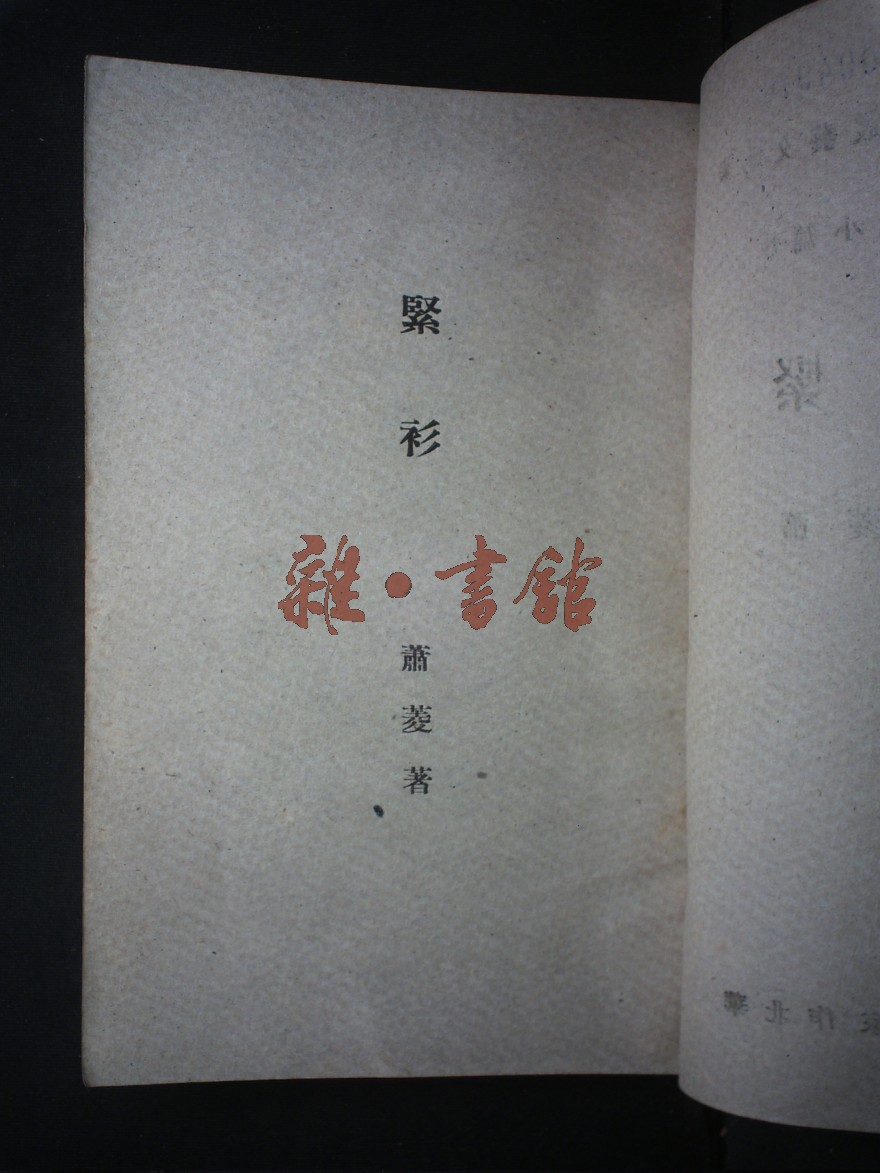 緊衫
雜·書館
蕭菱著